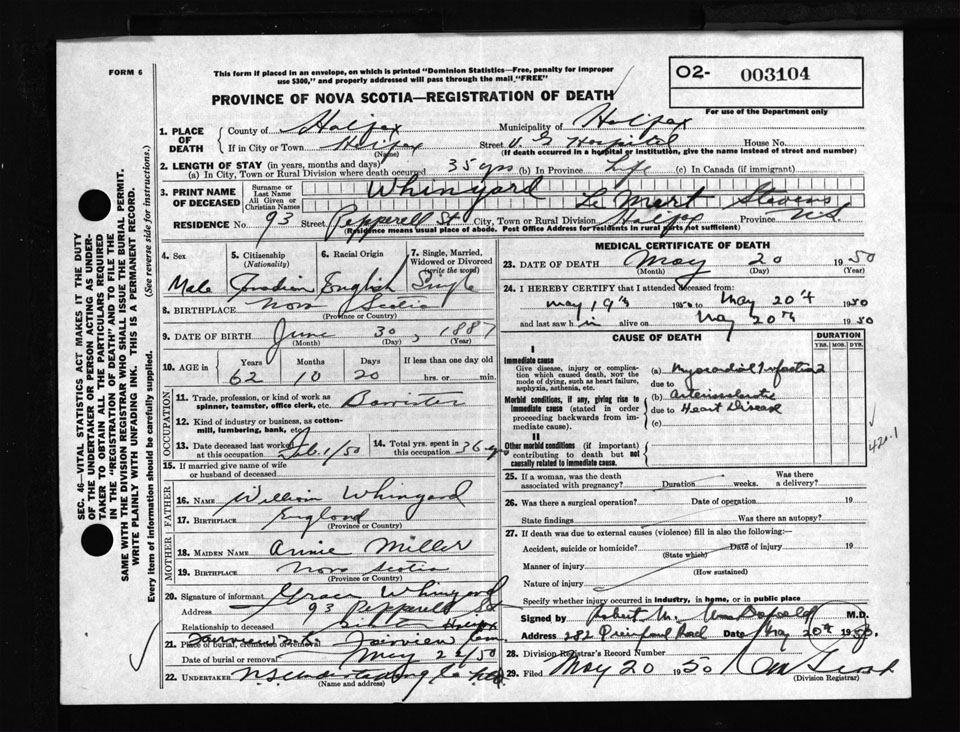 FORM 6
This form if placed in an envelope, on which is printed "Dominion Statistics—Free, penalty for improper
use $300," and properly addressed will pass through the mail "FREE"
O2- 003104
For use of the Department only
PROVINCE OF NOVA SCOTIA—REGISTRATION OF DEATH
1. PLACE OF DEATH
County of Halifax Municipality of Halifax
If in City or Town Halifax Street V. G Hospital House No.
(Name) (If death occurred in a hospital or institution, give the name instead of street and number)
2. LENGTH OF STAY (in years, months and days)
(a) In City, Town or Rural Division where death occurred 35 yrs (b) In Province Life (c) In Canada (if immigrant)
3. PRINT NAME OF DECEASED
Surname or Last Name Whinyard
All Given or Christian Names Le Mert Stevens
RESIDENCE No. 93 Street Pepperell St City, Town or Rural Division Halifax Province N.S.
(Residence means usual place of abode. Post Office Address for residents in rural parts not sufficient)
4. Sex 5. Citizenship (Nationality) 6. Racial Origin 7. Single, Married, Widowed or Divorced (write the word)
Male Canadian English Single
8. BIRTHPLACE Nova Scotia
(Province or Country)
9. DATE OF BIRTH June 30, 1887
(Month) (Day) (Year)
10. AGE in Years Months Days If less than one day old
62 10 20 hrs. or min.
OCCUPATION
11. Trade, profession, or kind of work as spinner, teamster, office clerk, etc. Barrister
12. Kind of industry or business, as cotton-mill, lumbering, bank, etc.
13. Date deceased last worked at this occupation Feb. 1/50 14. Total yrs. spent in this occupation 36 yrs
15. If married give name of wife or husband of deceased
FATHER
16. NAME William Whinyard
17. BIRTHPLACE England
(Province or Country)
MOTHER
18. MAIDEN NAME Annie Miller
19. BIRTHPLACE Nova Scotia
(Province or Country)
20. Signature of informant Grace Whinyard
Address 93 Pepperell St
Relationship to deceased Sister Halifax
21. Place of burial, cremation or removal Fairview Cem
Date of burial or removal May 22/50
22. UNDERTAKER N S Undertaking Co Ltd
(Name and address)
MEDICAL CERTIFICATE OF DEATH
23. DATE OF DEATH May 20 1950
(Month) (Day) (Year)
24. I HEREBY CERTIFY that I attended deceased from:
May 19th 1950 to May 20th 1950
and last saw h im alive on May 20th 1950
CAUSE OF DEATH
DURATION
YRS. MOS. DYS.
I
Immediate cause
Give disease, injury or complication which caused death, NOT the mode of dying, such as heart failure, asphyxia, asthenia, etc.
(a) Myocardial Infarction 2
due to
Morbid conditions, if any, giving rise to immediate cause (stated in order proceeding backwards from immediate cause).
(b) Arteriosclerotic
due to Heart Disease
(c)
II
Other morbid conditions (if important) contributing to death but not causally related to immediate cause.
420.1
25. If a woman, was the death associated with pregnancy? Duration weeks. Was there a delivery?
26. Was there a surgical operation? Date of operation 19
State findings Was there an autopsy?
27. If death was due to external causes (violence) fill in also the following:—
Accident, suicide or homicide? Date of injury 19
(State which)
Manner of injury
(How sustained)
Nature of injury
Specify whether injury occurred in industry, in home, or in public place
Signed by Robert M. MacDonald M.D.
Address 282 Road Date May 20th 1950.
28. Division Registrar's Record Number
29. Filed May 20 1950
(Division Registrar)
SEC. 46—VITAL STATISTICS ACT MAKES IT THE DUTY
OF THE UNDERTAKER OR PERSON ACTING AS UNDER-
TAKER TO OBTAIN ALL THE PARTICULARS REQUIRED
IN THE "REGISTRATION OF DEATH" AND TO FILE THE
SAME WITH THE DIVISION REGISTRAR WHO SHALL ISSUE THE BURIAL PERMIT.
WRITE PLAINLY WITH UNFADING INK. THIS IS A PERMANENT RECORD.
Every item of information should be carefully supplied. (See reverse side for instructions.)